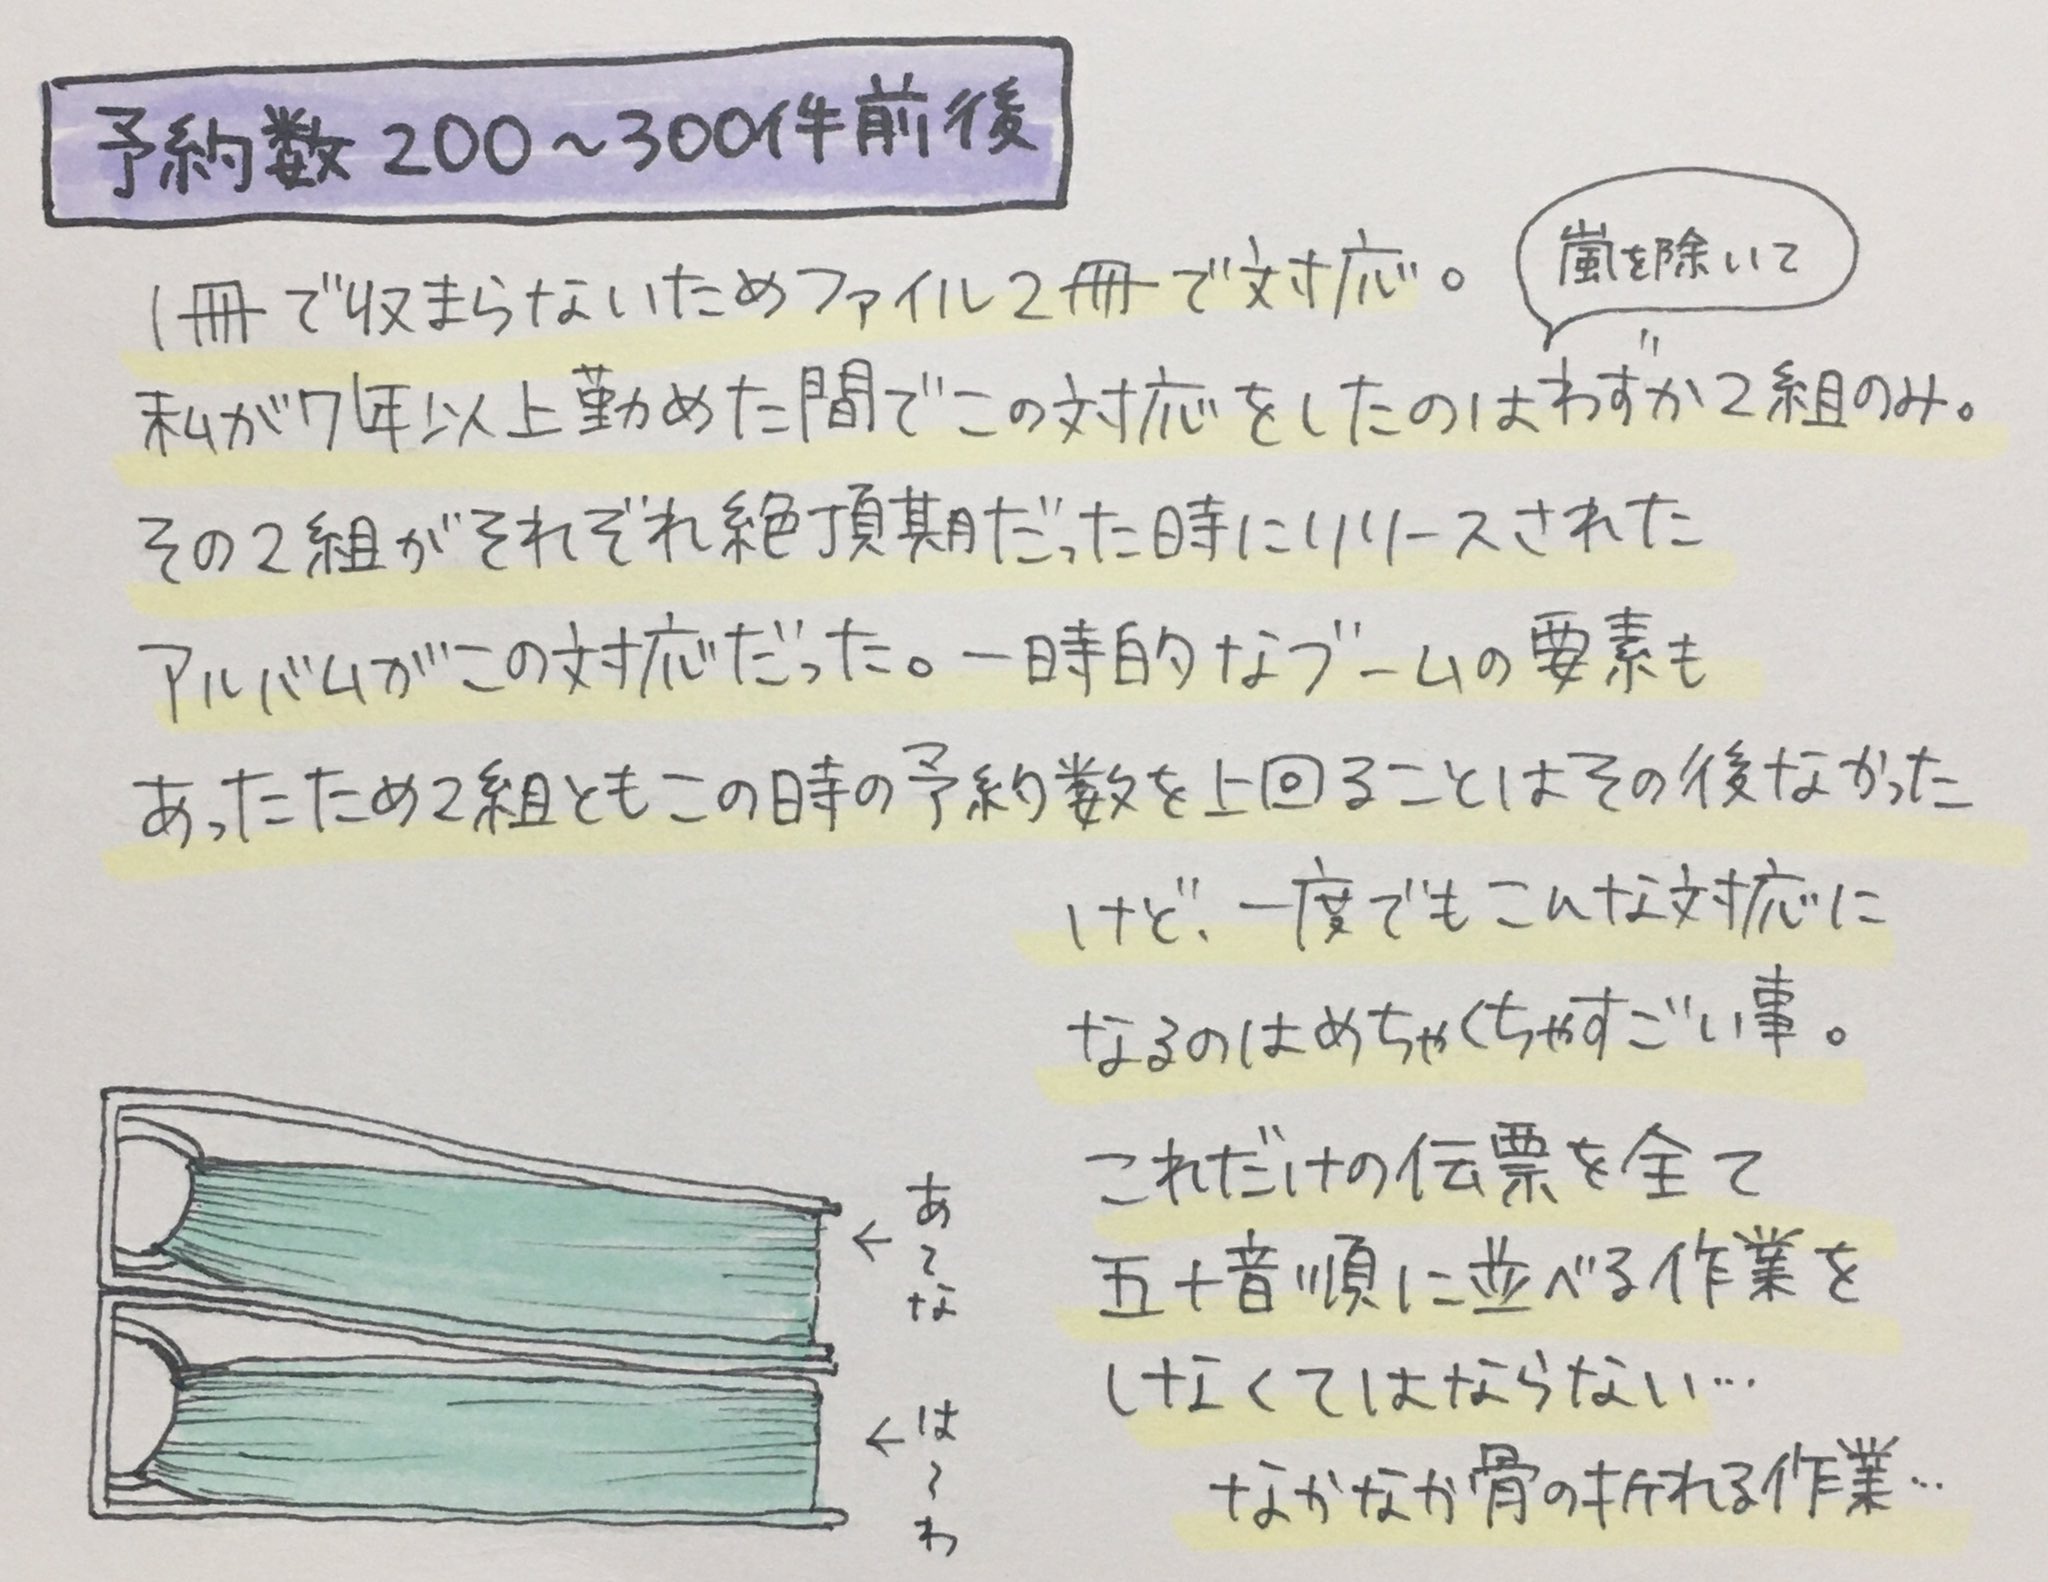 予約数200〜300件前後
1冊で収まらないためファイル2冊で対応。
嵐を除いて
私が7年以上勤めた間でこの対応をしたのはわずか2組のみ。
その2組がそれぞれ絶頂期だった時にリリースされた
アルバムがこの対応だった。一時的なブームの要素も
あったため2組ともこの時の予約数を上回ることはその後なかった
けど、一度でもこんな対応に
なるのはめちゃくちゃすごい事。
これだけの伝票を全て
五十音順に並べる作業を
しなくてはならない…
なかなか骨の折れる作業…
←あ〜な
←は〜わ